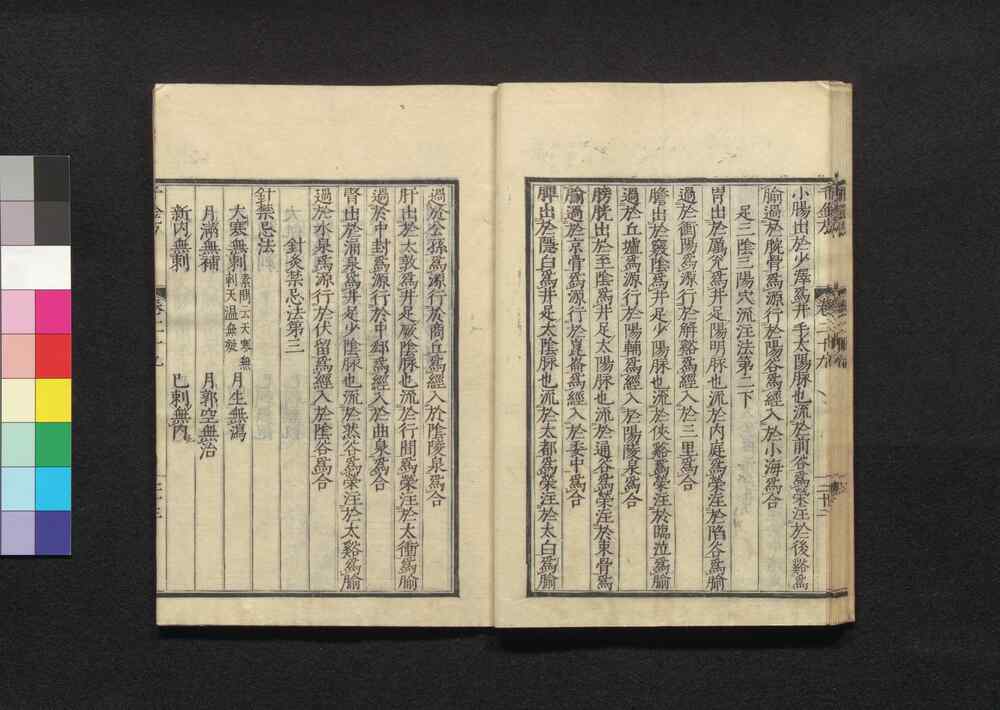 小腸出於少澤爲井手太陽脉也流於前谷爲滎注於後谿爲
腧過於腕骨爲源行於陽谷爲經入於小海爲合
足三陰三陽穴流注法第二下
胃出於厲兌爲井足陽明脉也流於内庭爲滎注於陷谷爲腧
過於衝陽爲源行於解谿爲經入於三里爲合
膽出於竅陰爲井足少陽脉也流於俠谿爲滎注於臨泣爲腧
過於丘墟爲源行於陽輔爲經入於陽陵泉爲合
膀胱出於至陰爲井足太陽脉也流於通谷爲滎注於束骨爲
腧過於京骨爲源行於崑崙爲經入於委中爲合
脾出於隱白爲井足太陰脉也流於太都爲滎注於太白爲腧
過於公孫爲源行於商丘爲經入於陰陵泉爲合
肝出於太敦爲井足厥陰脉也流於行間爲滎注於太衝爲腧
過於中封爲源行於中郄爲經入於曲泉爲合
腎出於涌泉爲井足少陰脉也流於然谷爲滎注於太谿爲腧
過於水泉爲源行於伏留爲經入於陰谷爲合
針灸禁忌法第三
針禁忌法
大寒無刺素問云天寒無刺天温無凝 月生無瀉
月滿無補 月郭空無治
新内無刺 已刺無内